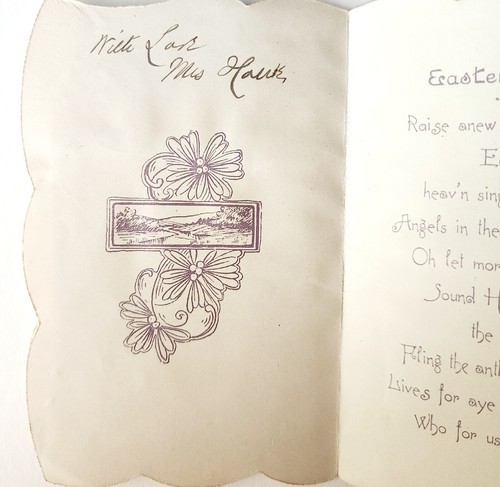 With Love
Mrs Hawk,
Easter
Raise anew
heav'n sing
Angels in the
Oh let mor
Sound H
the
Fling the anth
Lives for aye
Who for us